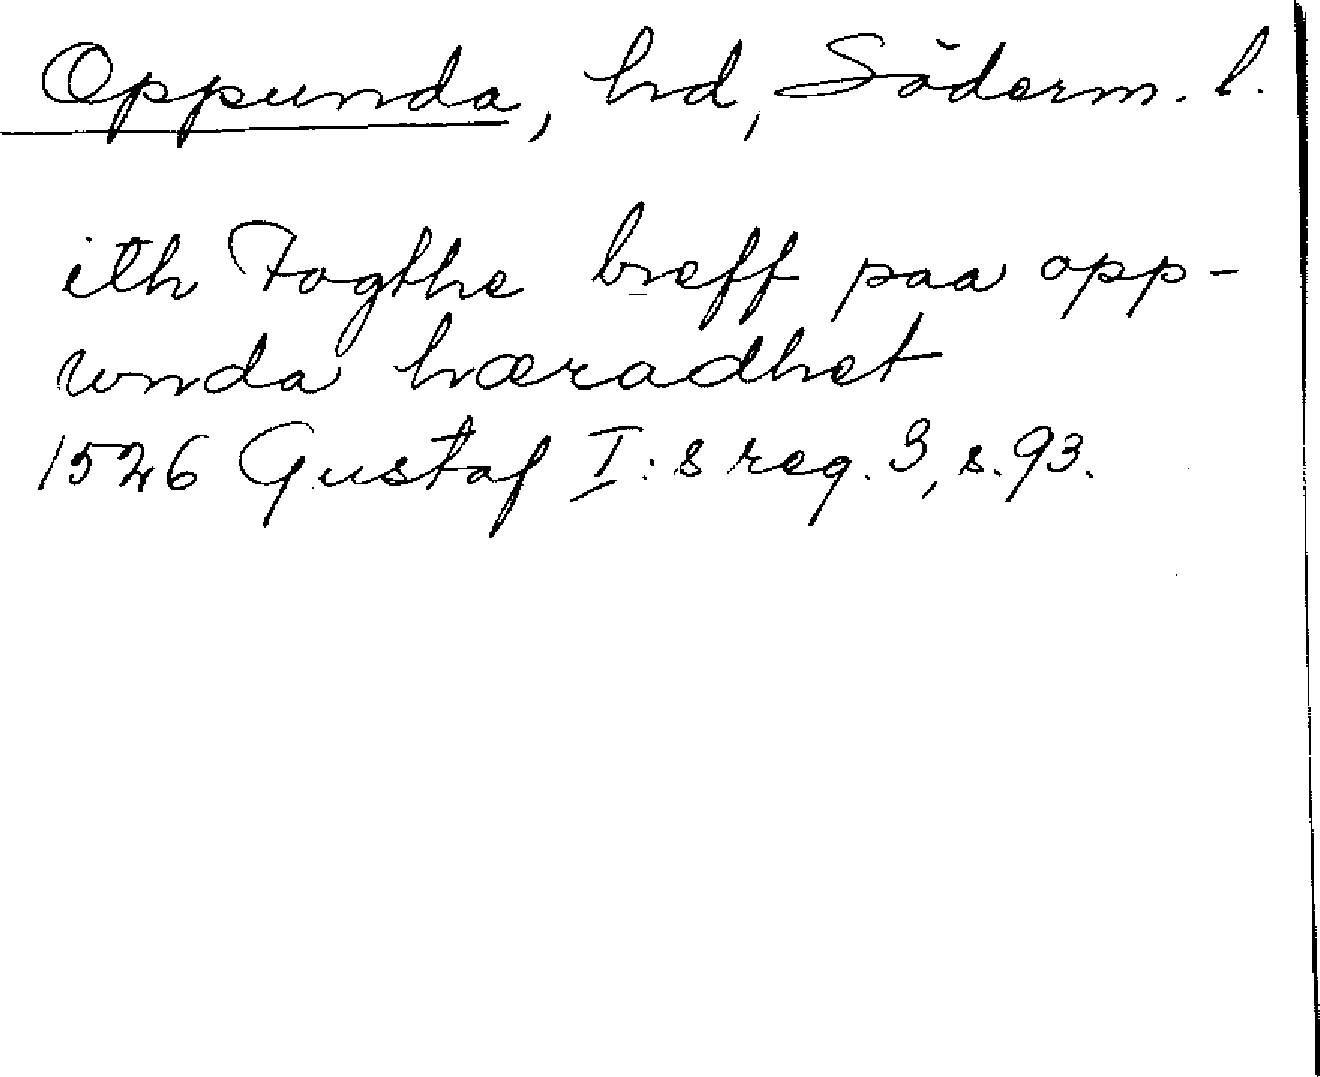 Oppunda, hd, Söderm. l.
ith Fogthe breff paa opp-
unda hæradhet
1526 Gustaf I:s reg. 3, s. 93.